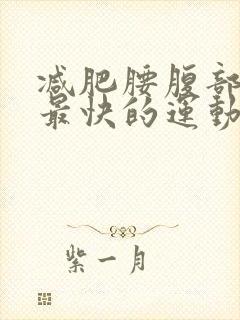 减肥腰腹部
最快的运動
紫一月